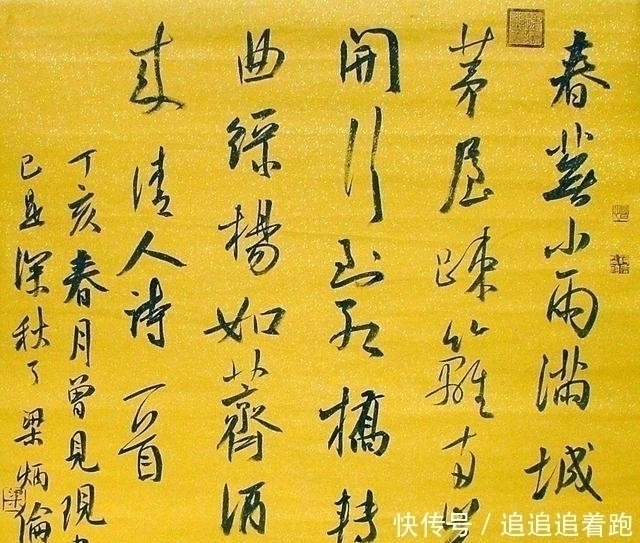 春蕪小雨滿城
茅屋疎籬
開行到紅橋轉
曲綠楊如薺酒
来 清人詩一首
丁亥春月曾見現
已是深秋了 梁炳倫
快传号 / 追追追着跑